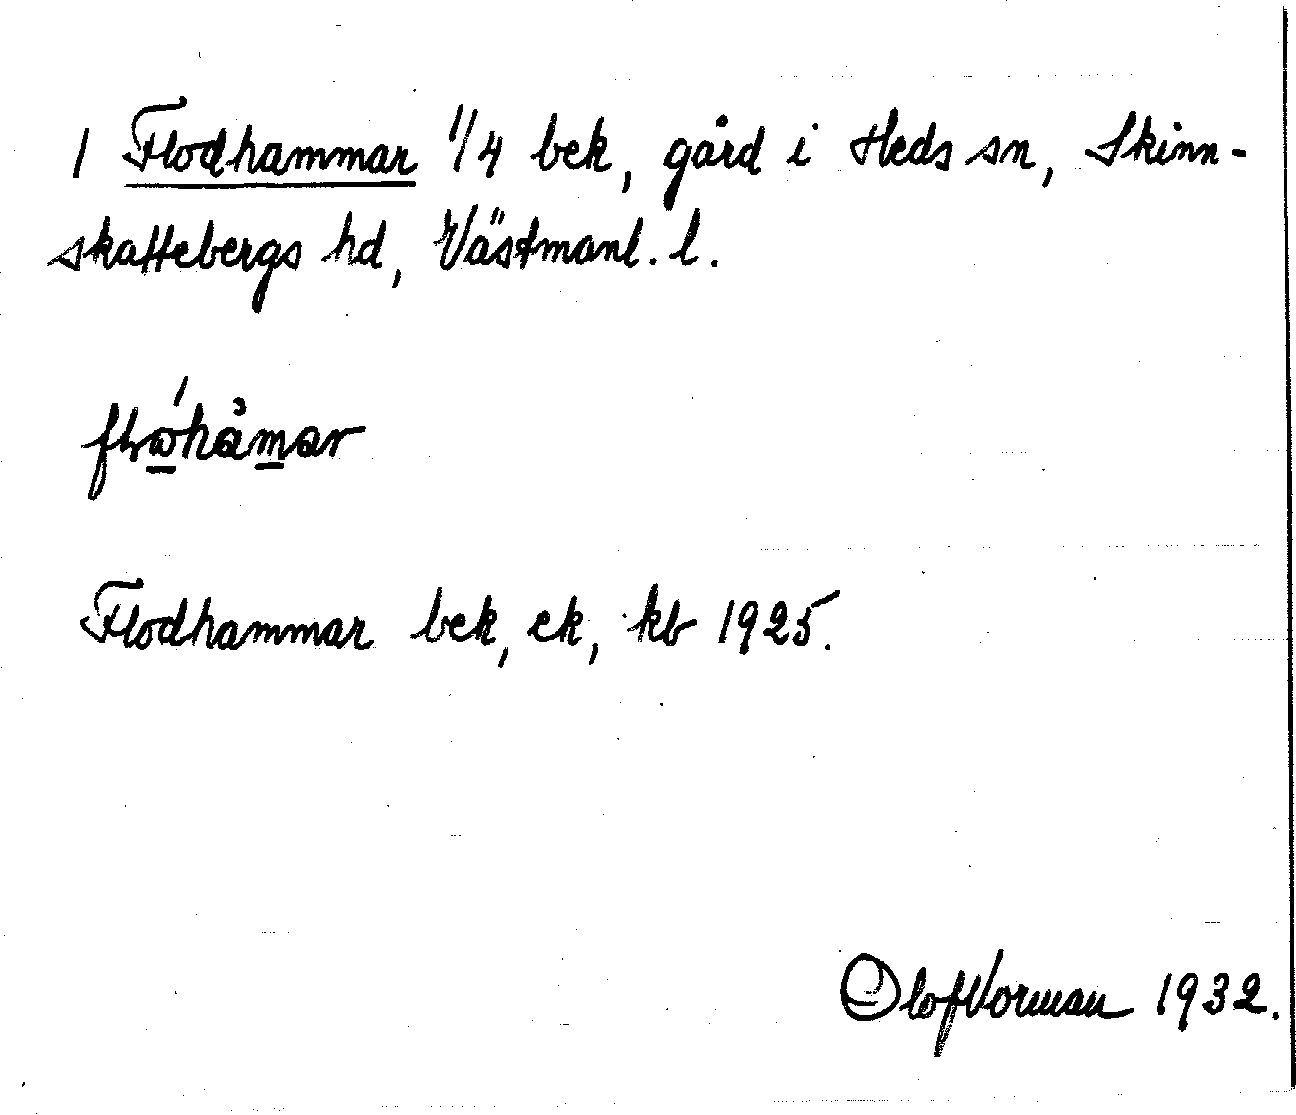 1 Flodhammar 1/4 bek, gård i Heds sn, Skinn-
skattebergs hd, Västmanl. l.
Flodhammar bek, ek, kb 1925.
Olof Vorman 1932.